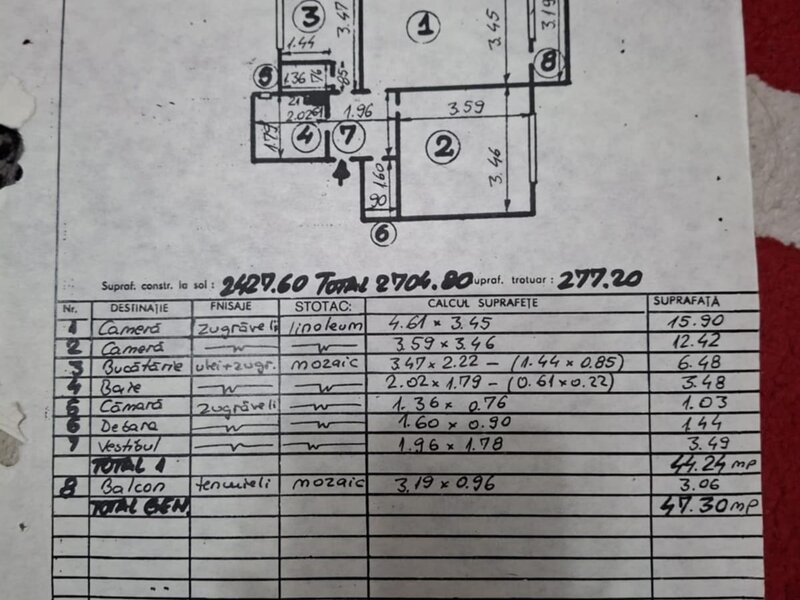 3
3.47
1
3.45
3.19
1.44
8
5
1.36
76
85
2.02
61
1.96
3.59
1.79
4
7
2
3.46
1.60
90
6
Supraf. constr. la sol : 2427.60 TOTAL 2704.80 supraf. trotuar : 277.20
Nr. DESTINAȚIE FNISAJE STOTAC: CALCUL SUPRAFEȚE SUPRAFAȚA
1 Cameră zugrăveli linoleum 4.61 x 3.45 15.90
2 Cameră 3.59 x 3.46 12.42
3 Bucătărie ulei+zugr. mozaic 3.47 x 2.22 - (1.44 x 0.85) 6.48
4 Baie 2.02 x 1.79 - (0.61 x 0.22) 3.48
5 Cămară zugrăveli 1.36 x 0.76 1.03
6 Debara 1.60 x 0.90 1.44
7 Vestibul 1.96 x 1.78 3.49
TOTAL 1 44.24 mp
8 Balcon tencuieli mozaic 3.19 x 0.96 3.06
TOTAL GEN. 47.30 mp